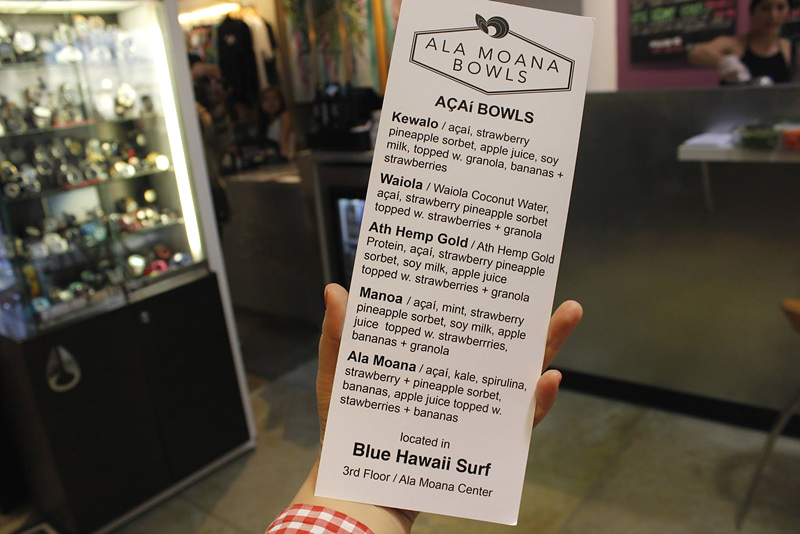 ALA MOANA
BOWLS
AÇAí BOWLS
Kewalo / açaí, strawberry
pineapple sorbet, apple juice, soy
milk, topped w. granola, bananas +
strawberries
Waiola / Waiola Coconut Water,
açaí, strawberry pineapple sorbet
topped w. strawberries + granola
Ath Hemp Gold / Ath Hemp Gold
Protein, açaí, strawberry pineapple
sorbet, soy milk, apple juice
topped w. strawberries + granola
Manoa / açaí, mint, strawberry
pineapple sorbet, soy milk, apple
juice topped w. strawberrries,
bananas + granola
Ala Moana / açaí, kale, spirulina,
strawberry + pineapple sorbet,
bananas, apple juice topped w.
stawberries + bananas
located in
Blue Hawaii Surf
3rd Floor / Ala Moana Center